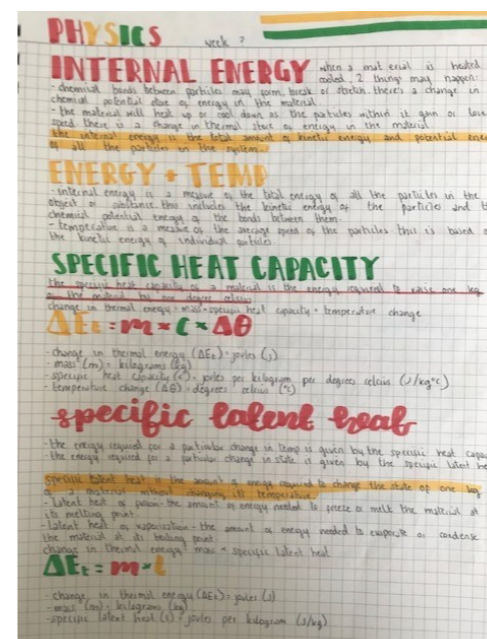 PHYSICS week ?
INTERNAL ENERGY when a material is heated
cooled, 2 things may happen:
- chemical bonds between particles may form, break or stretch. there's a change in
chemical potential store of energy in the material
- the material will heat up or cool down as the particles within it gain or lose
speed. there is a change in thermal store of energy in the material
the internal energy is the total amount of kinetic energy and potential ener
of all the particles in the system.
ENERGY + TEMP
- internal energy is a measure of the total energy of all the particles in the
object or substance this includes the kinetic energy of the particles and t
chemical potential energy of the bonds between them.
- temperature is a measure of the average speed of the particles this is based o
the kinetic energy of individual particles.
SPECIFIC HEAT CAPACITY
the specific heat capacity of a material is the energy required to raise one kg
of the material by one degree celcius
change in thermal energy = mass × specific heat capacity × temperature change
ΔEt = m × c × Δθ
- change in thermal energy (ΔEt) = joules (J)
- mass (m) = kilograms (kg)
- specific heat capacity (c) = joules per kilogram per degrees celcius (J/kg°C)
- temperature change (Δθ) = degrees celcius (°C)
specific latent heat
- the energy required for a particular change in temp is given by the specific heat capac
- the energy required for a particular change in state is given by the specific latent he
specific latent heat is the amount of energy required to change the state of one kg
of a material without changing its temperature.
- latent heat of fusion - the amount of energy needed to freeze or melt the material at
its melting point.
- latent heat of vaporisation - the amount of energy needed to evaporate or condense
the material at its boiling point.
change in thermal energy: mass × specific latent heat
ΔEt = m × l
- change in thermal energy (ΔEt) = joules (J)
- mass (m) = kilograms (kg)
- specific latent heat (l) = joules per kilogram (J/kg)